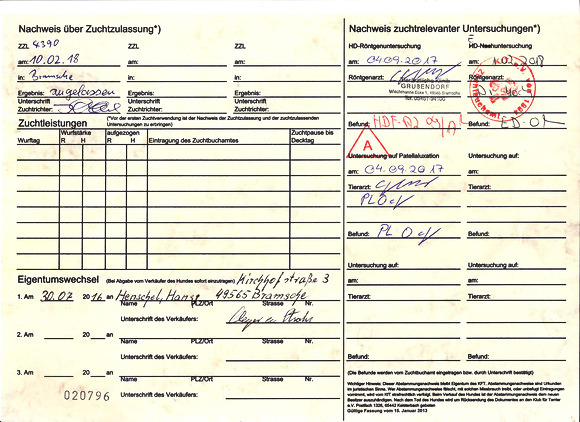 Nachweis über Zuchtzulassung*)
ZZL 4390
ZZL
ZZL
am: 10.02.18
am:
am:
in: Bramsche
in:
in:
Ergebnis: zugelassen
Ergebnis:
Ergebnis:
Unterschrift
Zuchtrichter:
Unterschrift
Zuchtrichter:
Unterschrift
Zuchtrichter:
Zuchtleistungen
(*Vor der ersten Zuchtverwendung ist der Nachweis der Zuchtzulassung und der zuchtzulassenden
Untersuchungen zu erbringen)
Wurftag
Wurfstärke
R H
aufgezogen
R H
Eintragung des Zuchtbuchamtes
Zuchtpause bis
Decktag
Eigentumswechsel (Bei Abgabe vom Verkäufer des Hundes sofort einzutragen) Kirchhofstraße 3
1. Am 30.07 2016 an Henschel, Hans 49565 Bramsche
Name PLZ/Ort Strasse Nr.
Unterschrift des Verkäufers:
2. Am 20 an
Name PLZ/Ort Strasse Nr.
Unterschrift des Verkäufers:
3. Am 20 an
Name PLZ/Ort Strasse Nr.
020796 Unterschrift des Verkäufers:
Nachweis zuchtrelevanter Untersuchungen*)
HD-Röntgenuntersuchung
am: 04.09.2017
Röntgenarzt:
"GRUBENDORF"
Befund: HDF-A2
A
E
HD-Nachuntersuchung
am: 2018
Röntgenarzt:
Befund: ED-0
Untersuchung auf Patellaluxation
am: 04.09.2017
Tierarzt:
PL 0
Befund: PL 0
Untersuchung auf:
am:
Tierarzt:
Befund:
Untersuchung auf:
am:
Tierarzt:
Befund:
Untersuchung auf:
am:
Tierarzt:
Befund:
(Die Befunde werden vom Zuchtbuchamt eingetragen bzw. durch Unterschrift bestätigt)
Wichtiger Hinweis: Dieser Abstammungsnachweis bleibt Eigentum des KFT. Abstammungsnachweise sind Urkunden
im juristischen Sinne. Wer Abstammungsnachweise fälscht, mit solchen Missbrauch treibt, oder unbefugt Eintragungen
vornimmt, wird vom KFT strafrechtlich verfolgt. Beim Verkauf des Hundes ist der Abstammungsnachweis dem neuen
Besitzer auszuhändigen. Nach dem Tod des Hundes wird um Rücksendung des Dokumentes an den Klub für Terrier
e.V. Postfach 1326, 65442 Kelsterbach gebeten
Gültige Fassung vom 15. Januar 2013